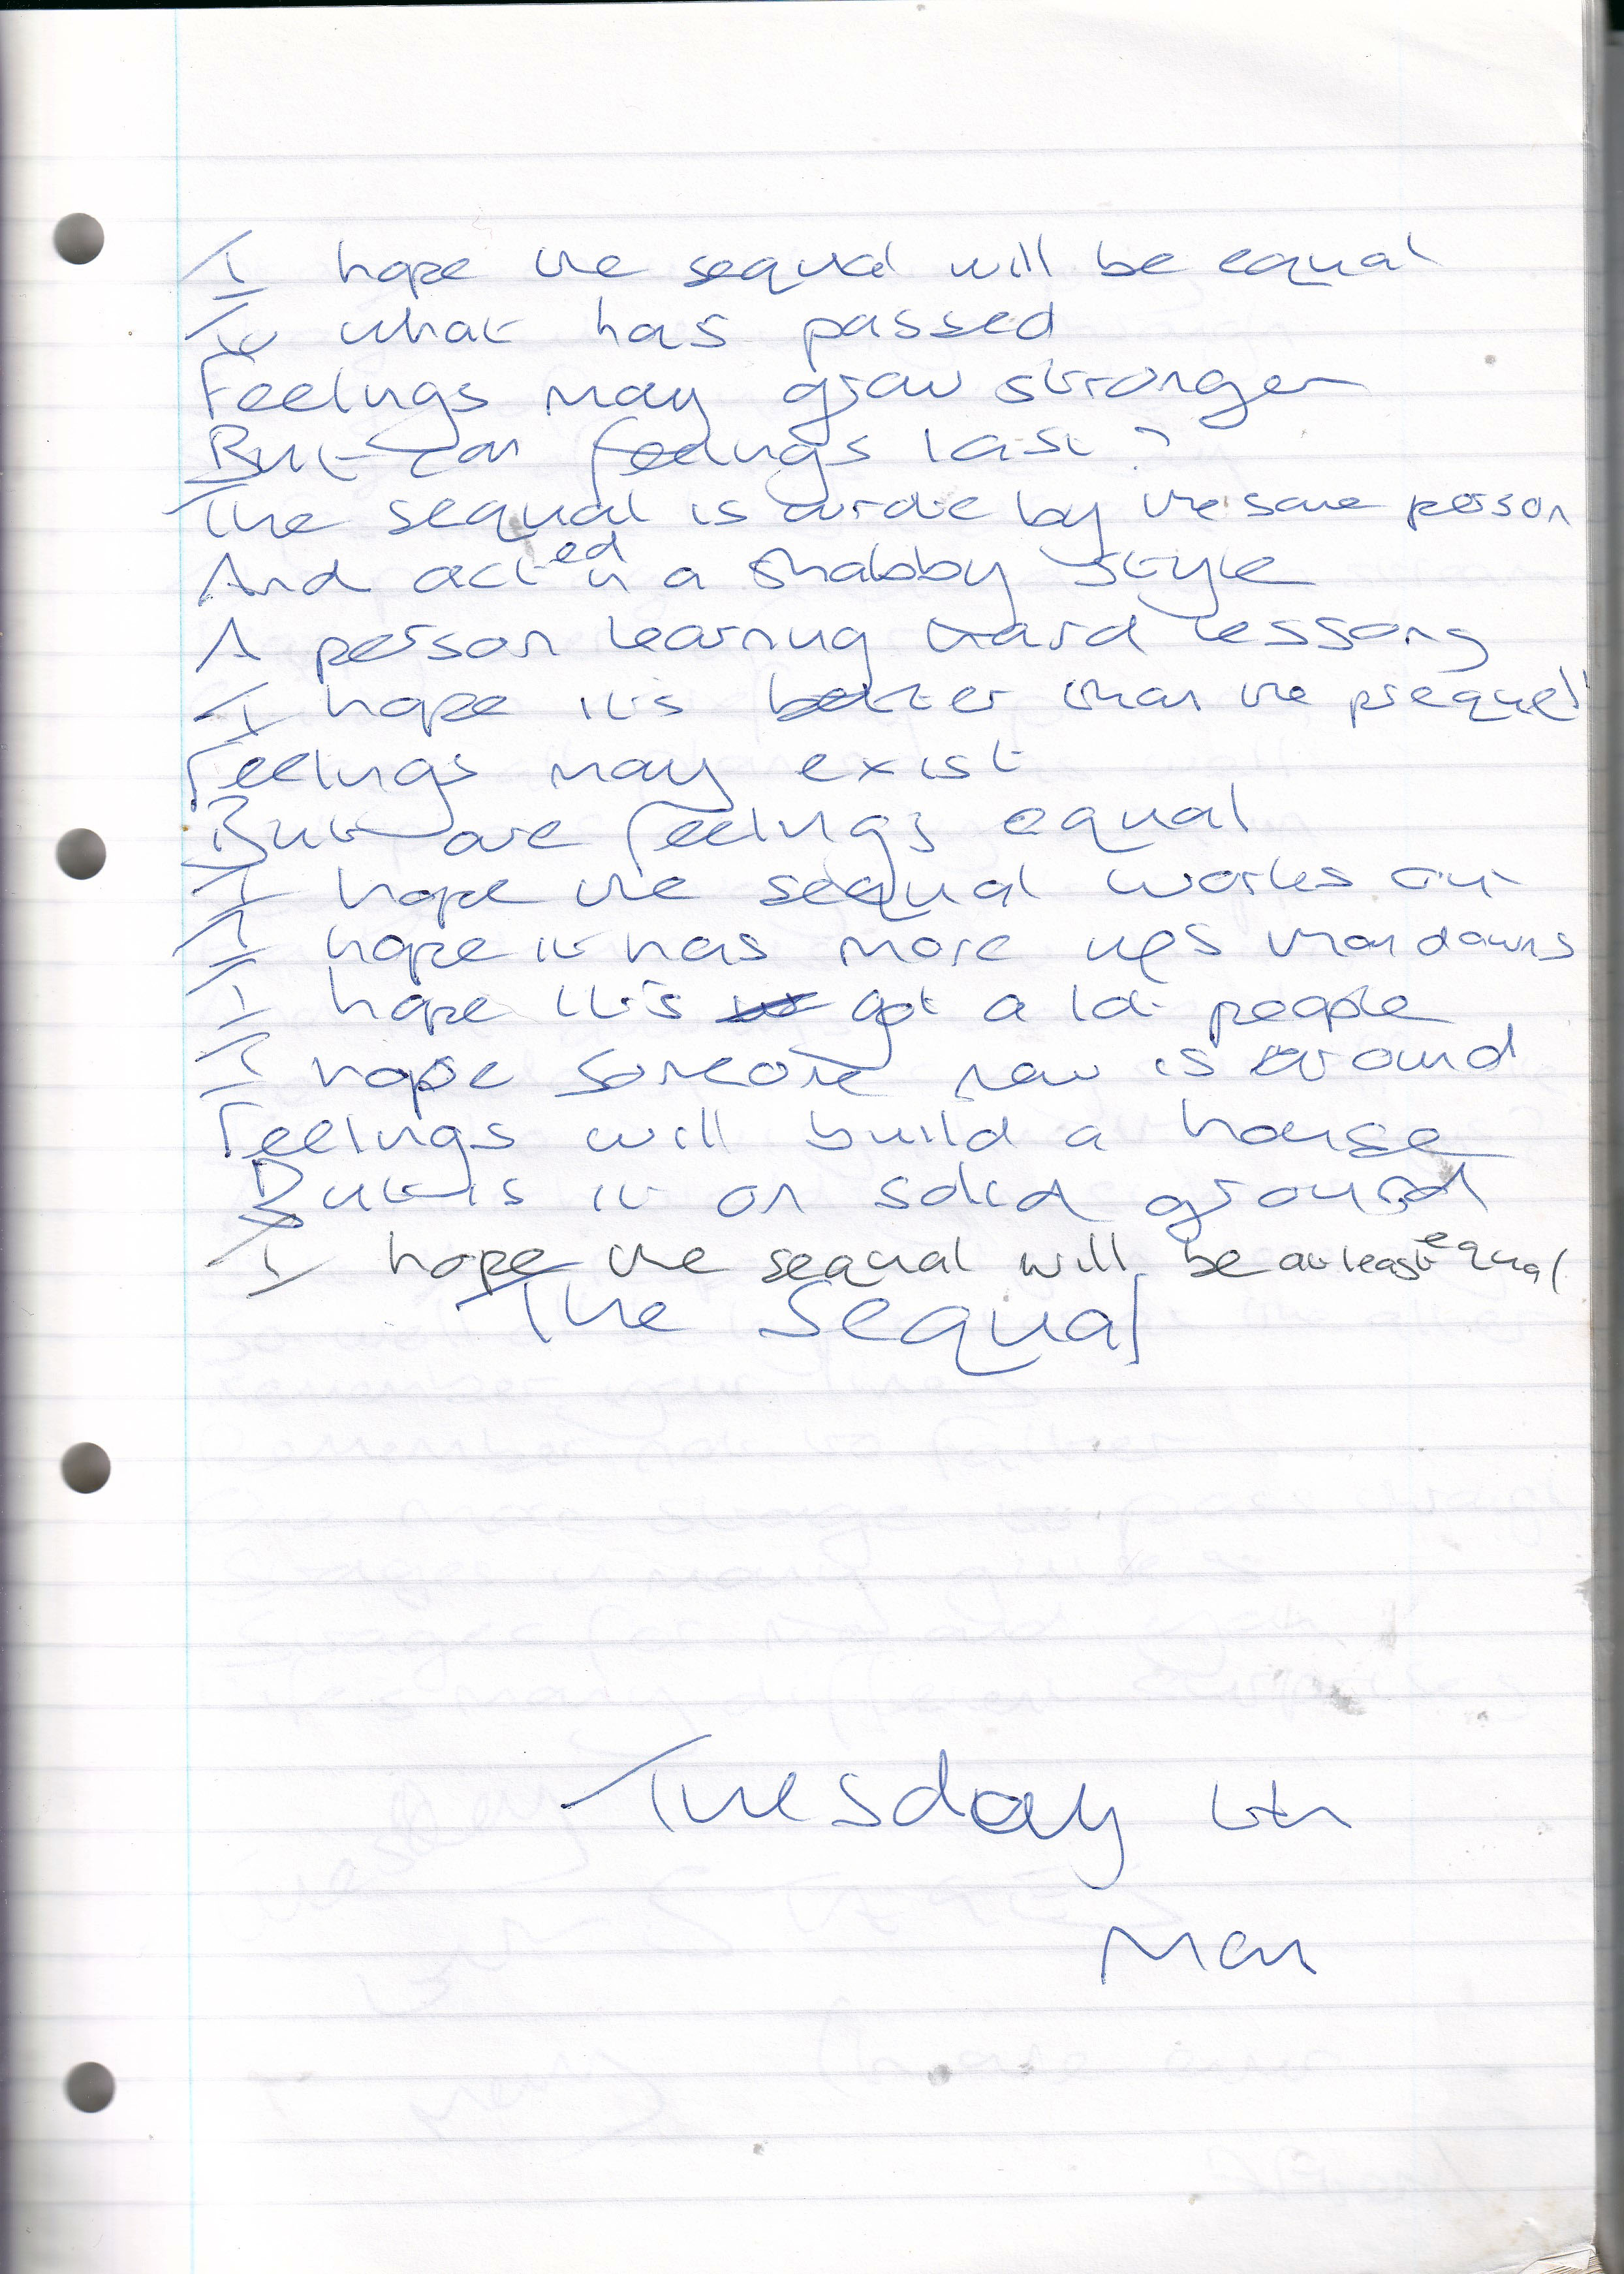 I hope the sequal will be equal
To what has passed
Feelings may grow stronger
But can feelings last?
The sequal is by the same person
And acted in a shabby style
A person learning hard lessons
I hope it's better than the prequel
Feelings may exist
But are feelings equal
I hope the sequal works out
I hope it has more ups than downs
I hope it's got a lot people
I hope someone new is around
Feelings will build a house
But is it on solid ground
I hope the sequal will be at least equal
The Sequal
Tuesday